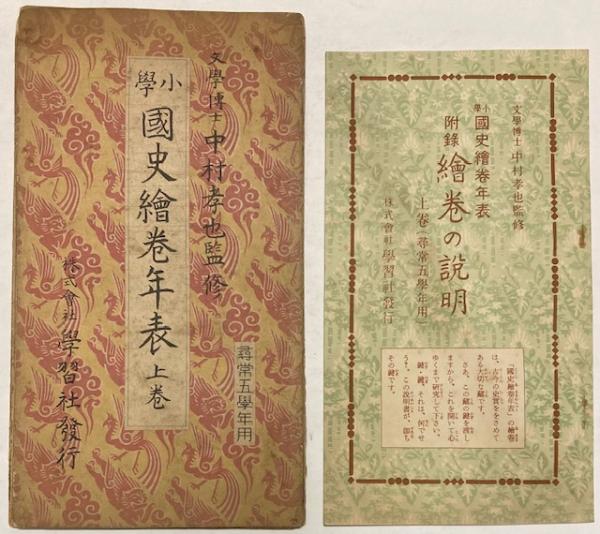 文學博士 中村孝也監修
小學 國史繪卷年表 上卷
尋常五學年用
株式會社 學習社發行
文學博士 中村孝也監修
小學 國史繪卷年表
附錄 繪卷の說明
上卷(尋常五學年用)
株式會社 學習社發行
『國史繪卷年表』の繪卷
は、古今の史實ををさめて
ある大切な藏です。
さあ、この藏の鍵を渡し
ますから、これを開いて心
ゆくまで研究して下さい。
鍵・鍵、それは、何でせ
うす。この說明書が、卽ち
その鍵です。